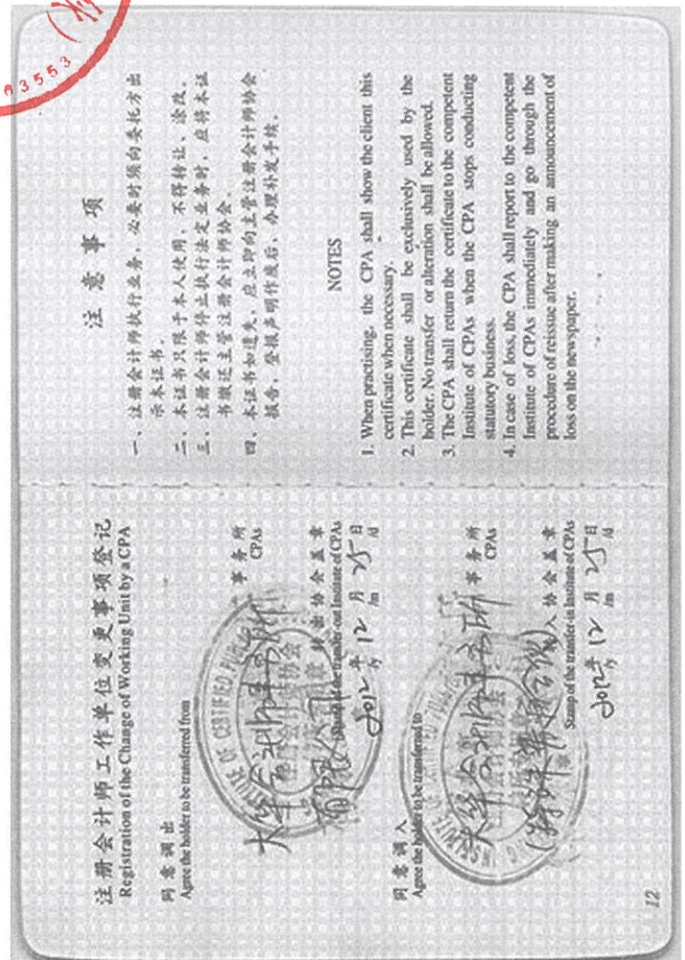 注册会计师工作单位变更事项登记
Registration of the Change of Working Unit by a CPA
同意调出
Agree the holder to be transferred from
大华会计师事务所
有限公司
事务所
CPAs
转出协会盖章
Stamp of the transfer-out Institute of CPAs
2012年12月25日
/y /m /d
同意调入
Agree the holder to be transferred to
大华会计师事务所
(特殊普通合伙)
事务所
CPAs
转入协会盖章
Stamp of the transfer-in Institute of CPAs
2012年12月25日
/y /m /d
12
注意事项
一、注册会计师执行业务，必要时须向委托方出
示本证书。
二、本证书只限于本人使用，不得转让、涂改。
三、注册会计师停止执行法定业务时，应将本证
书缴还主管注册会计师协会。
四、本证书如遗失，应立即向主管注册会计师协会
报告，登报声明作废后，办理补发手续。
NOTES
1. When practising, the CPA shall show the client this
certificate when necessary.
2. This certificate shall be exclusively used by the
holder. No transfer or alteration shall be allowed.
3. The CPA shall return the certificate to the competent
Institute of CPAs when the CPA stops conducting
statutory business.
4. In case of loss, the CPA shall report to the competent
Institute of CPAs immediately and go through the
procedure of reissue after making an announcement of
loss on the newspaper.
93553